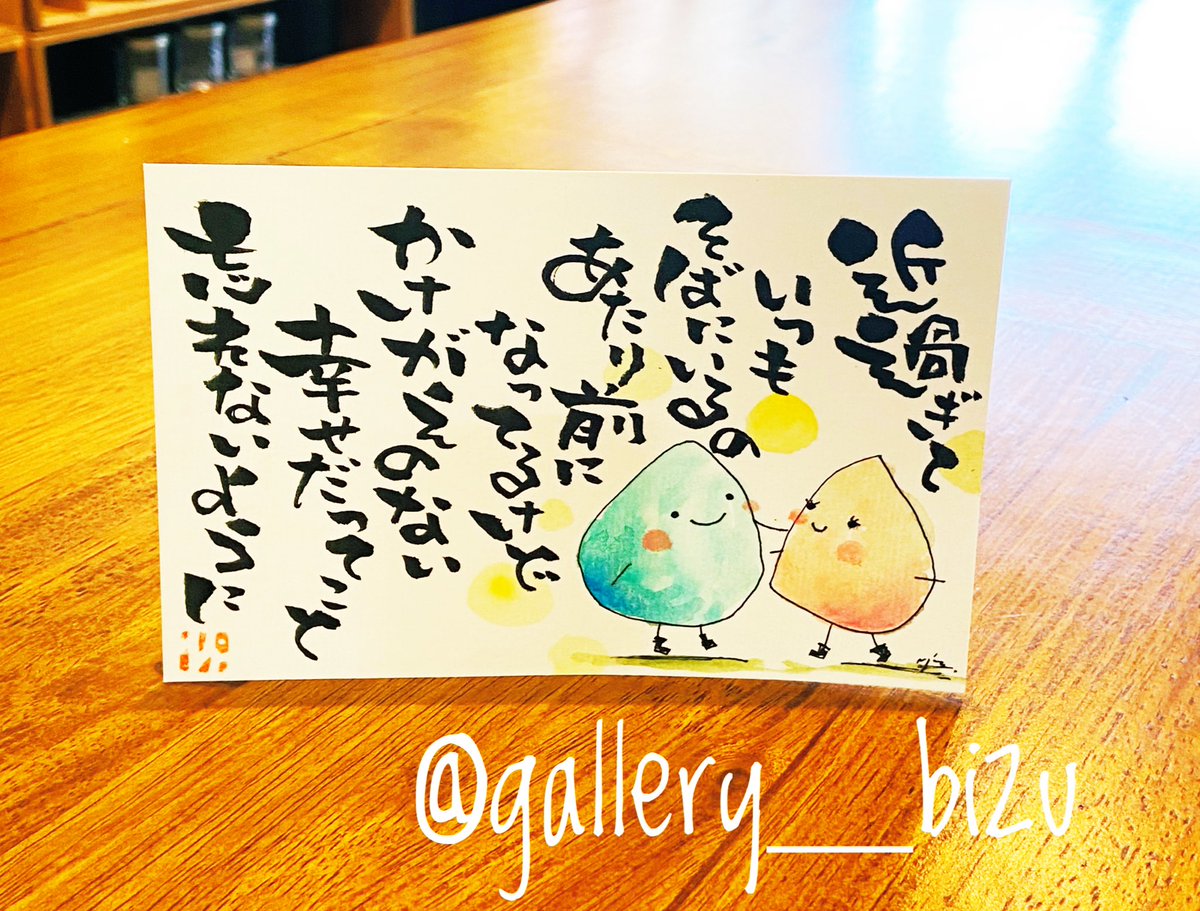 近過ぎて
いつも
そばにいるの
あたり前に
なってるけど
かけがえのない
幸せだってこと
忘れないように
@gallery__bizu